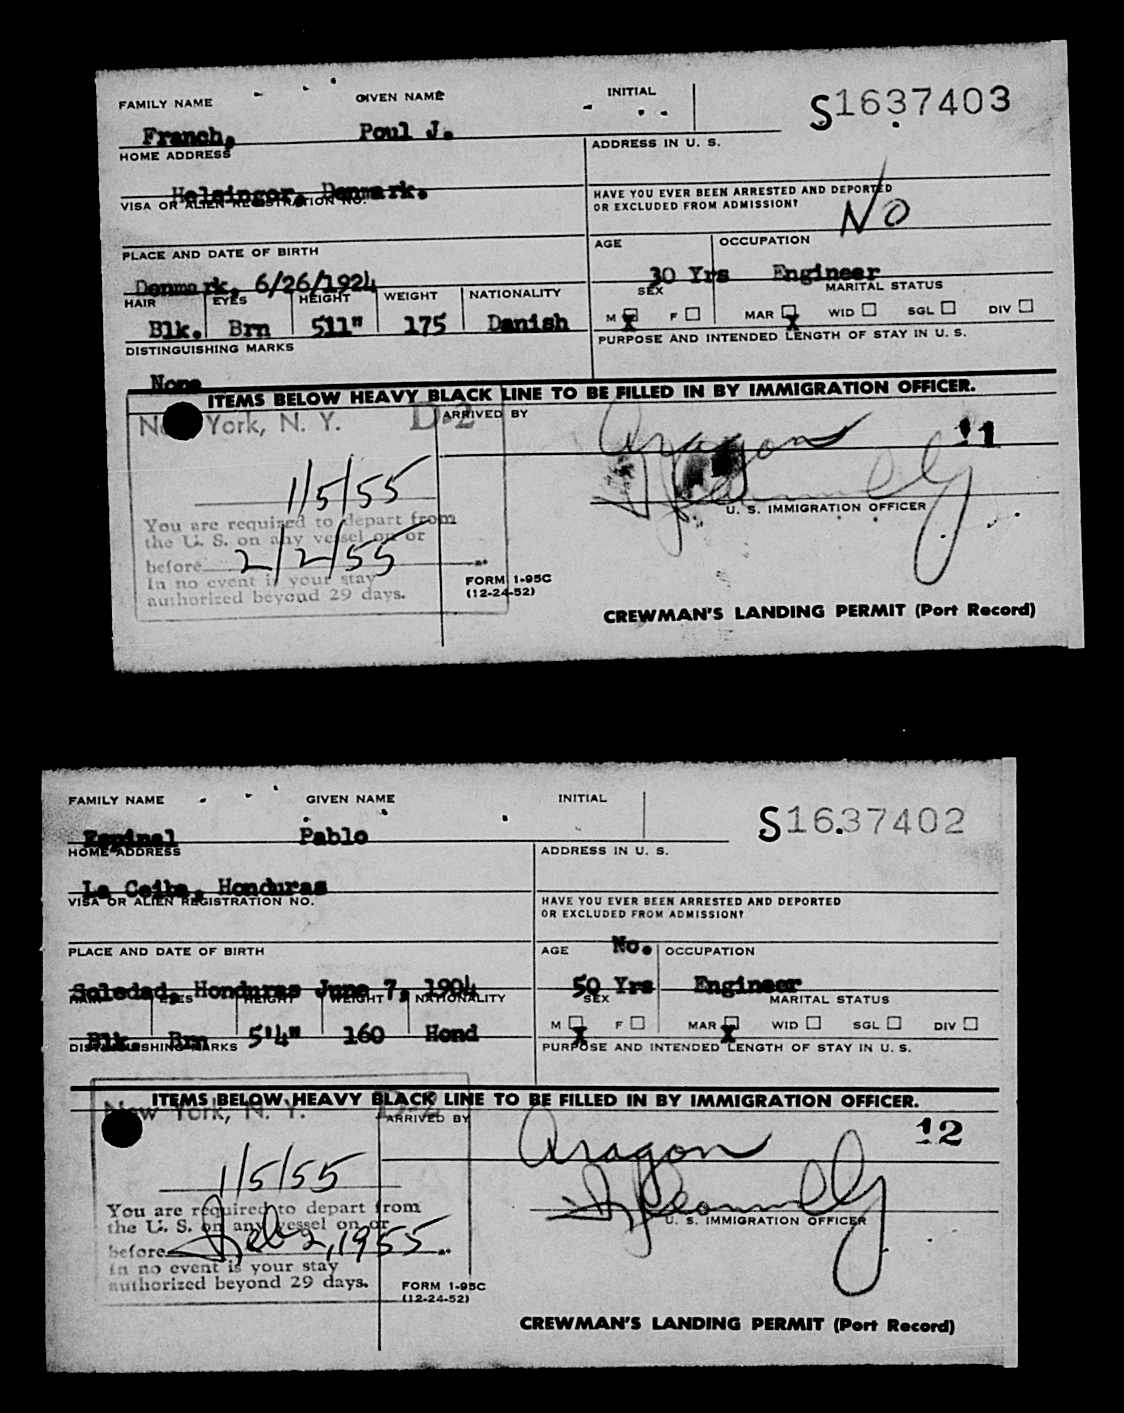 FAMILY NAME GIVEN NAME INITIAL
S1637403
Franch, Poul J.
HOME ADDRESS ADDRESS IN U. S.
Helsingor, Denmark.
VISA OR ALIEN REGISTRATION NO. HAVE YOU EVER BEEN ARRESTED AND DEPORTED
OR EXCLUDED FROM ADMISSION? NO
PLACE AND DATE OF BIRTH AGE OCCUPATION
Denmark, 6/26/1924 30 Yrs Engineer
HAIR EYES HEIGHT WEIGHT NATIONALITY SEX MARITAL STATUS
M X F MAR X WID SGL DIV
Blk. Brn 511" 175 Danish
DISTINGUISHING MARKS PURPOSE AND INTENDED LENGTH OF STAY IN U. S.
None
ITEMS BELOW HEAVY BLACK LINE TO BE FILLED IN BY IMMIGRATION OFFICER.
New York, N. Y. D-2 ARRIVED BY Aragon 11
1/5/55
U. S. IMMIGRATION OFFICER
You are required to depart from
the U. S. on any vessel on or
before 2/2/55
In no event is your stay
authorized beyond 29 days.
FORM I-95C
(12-24-52)
CREWMAN'S LANDING PERMIT (Port Record)
FAMILY NAME GIVEN NAME INITIAL
S1637402
Espinal Pablo
HOME ADDRESS ADDRESS IN U. S.
La Ceiba, Honduras
VISA OR ALIEN REGISTRATION NO. HAVE YOU EVER BEEN ARRESTED AND DEPORTED
OR EXCLUDED FROM ADMISSION?
No.
PLACE AND DATE OF BIRTH AGE OCCUPATION
Soledad, Honduras June 7, 1904 50 Yrs Engineer
HAIR EYES HEIGHT WEIGHT NATIONALITY SEX MARITAL STATUS
M X F MAR X WID SGL DIV
Blk. Brn 5'4" 160 Hond
DISTINGUISHING MARKS PURPOSE AND INTENDED LENGTH OF STAY IN U. S.
ITEMS BELOW HEAVY BLACK LINE TO BE FILLED IN BY IMMIGRATION OFFICER.
New York, N. Y. D-2 ARRIVED BY Aragon 12
1/5/55
You are required to depart from
the U. S. on any vessel on or
U. S. IMMIGRATION OFFICER
before Feb 2, 1955
In no event is your stay
authorized beyond 29 days.
FORM I-95C
(12-24-52)
CREWMAN'S LANDING PERMIT (Port Record)